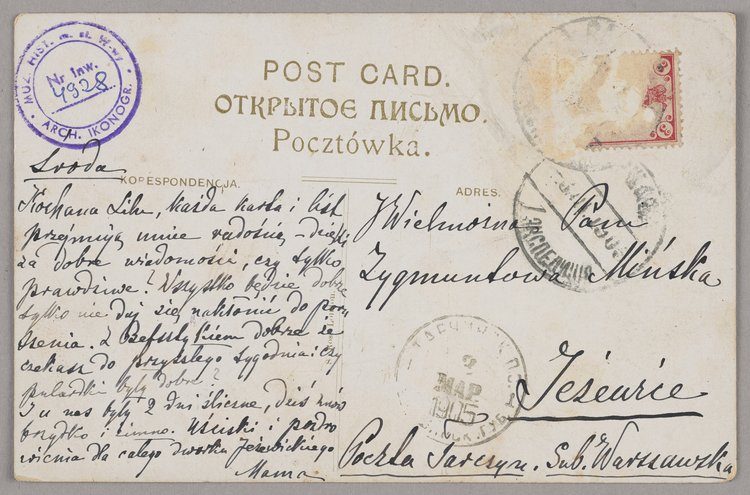 MUZ. HIST. M. ST. W-WY
Nr Inw.
4928
ARCH. IKONOGR.
POST CARD.
ОТКРЫТОЕ ПИСЬМО.
Pocztówka.
KORESPONDENCJA.
ADRES.
Środa
Kochana Lilu, każda karta i list
przejmują mnie radością – dzięki
za dobre wiadomości, czy tylko
prawdziwe! Wszystko będzie dobrze
tylko nie daj się nakłonić do
szenia. Z Befsztykiem dobrze że
czekasz do przyszłego tygodnia i czy
pulardki były dobre?
I u nas były 2 dni śliczne, dziś znów
brzydko i zimno. Uściski i pozdro
wienia dla całego dworku Jeżewickiego
Mama
JWielmożna Pani
Zygmuntowa Mińska
Jeżewice
Poczta Tarczyn. Gub. Warszawska
ЭКСПЕДИЦІЯ
ТАРЧИНЪ
2
МАР
1905